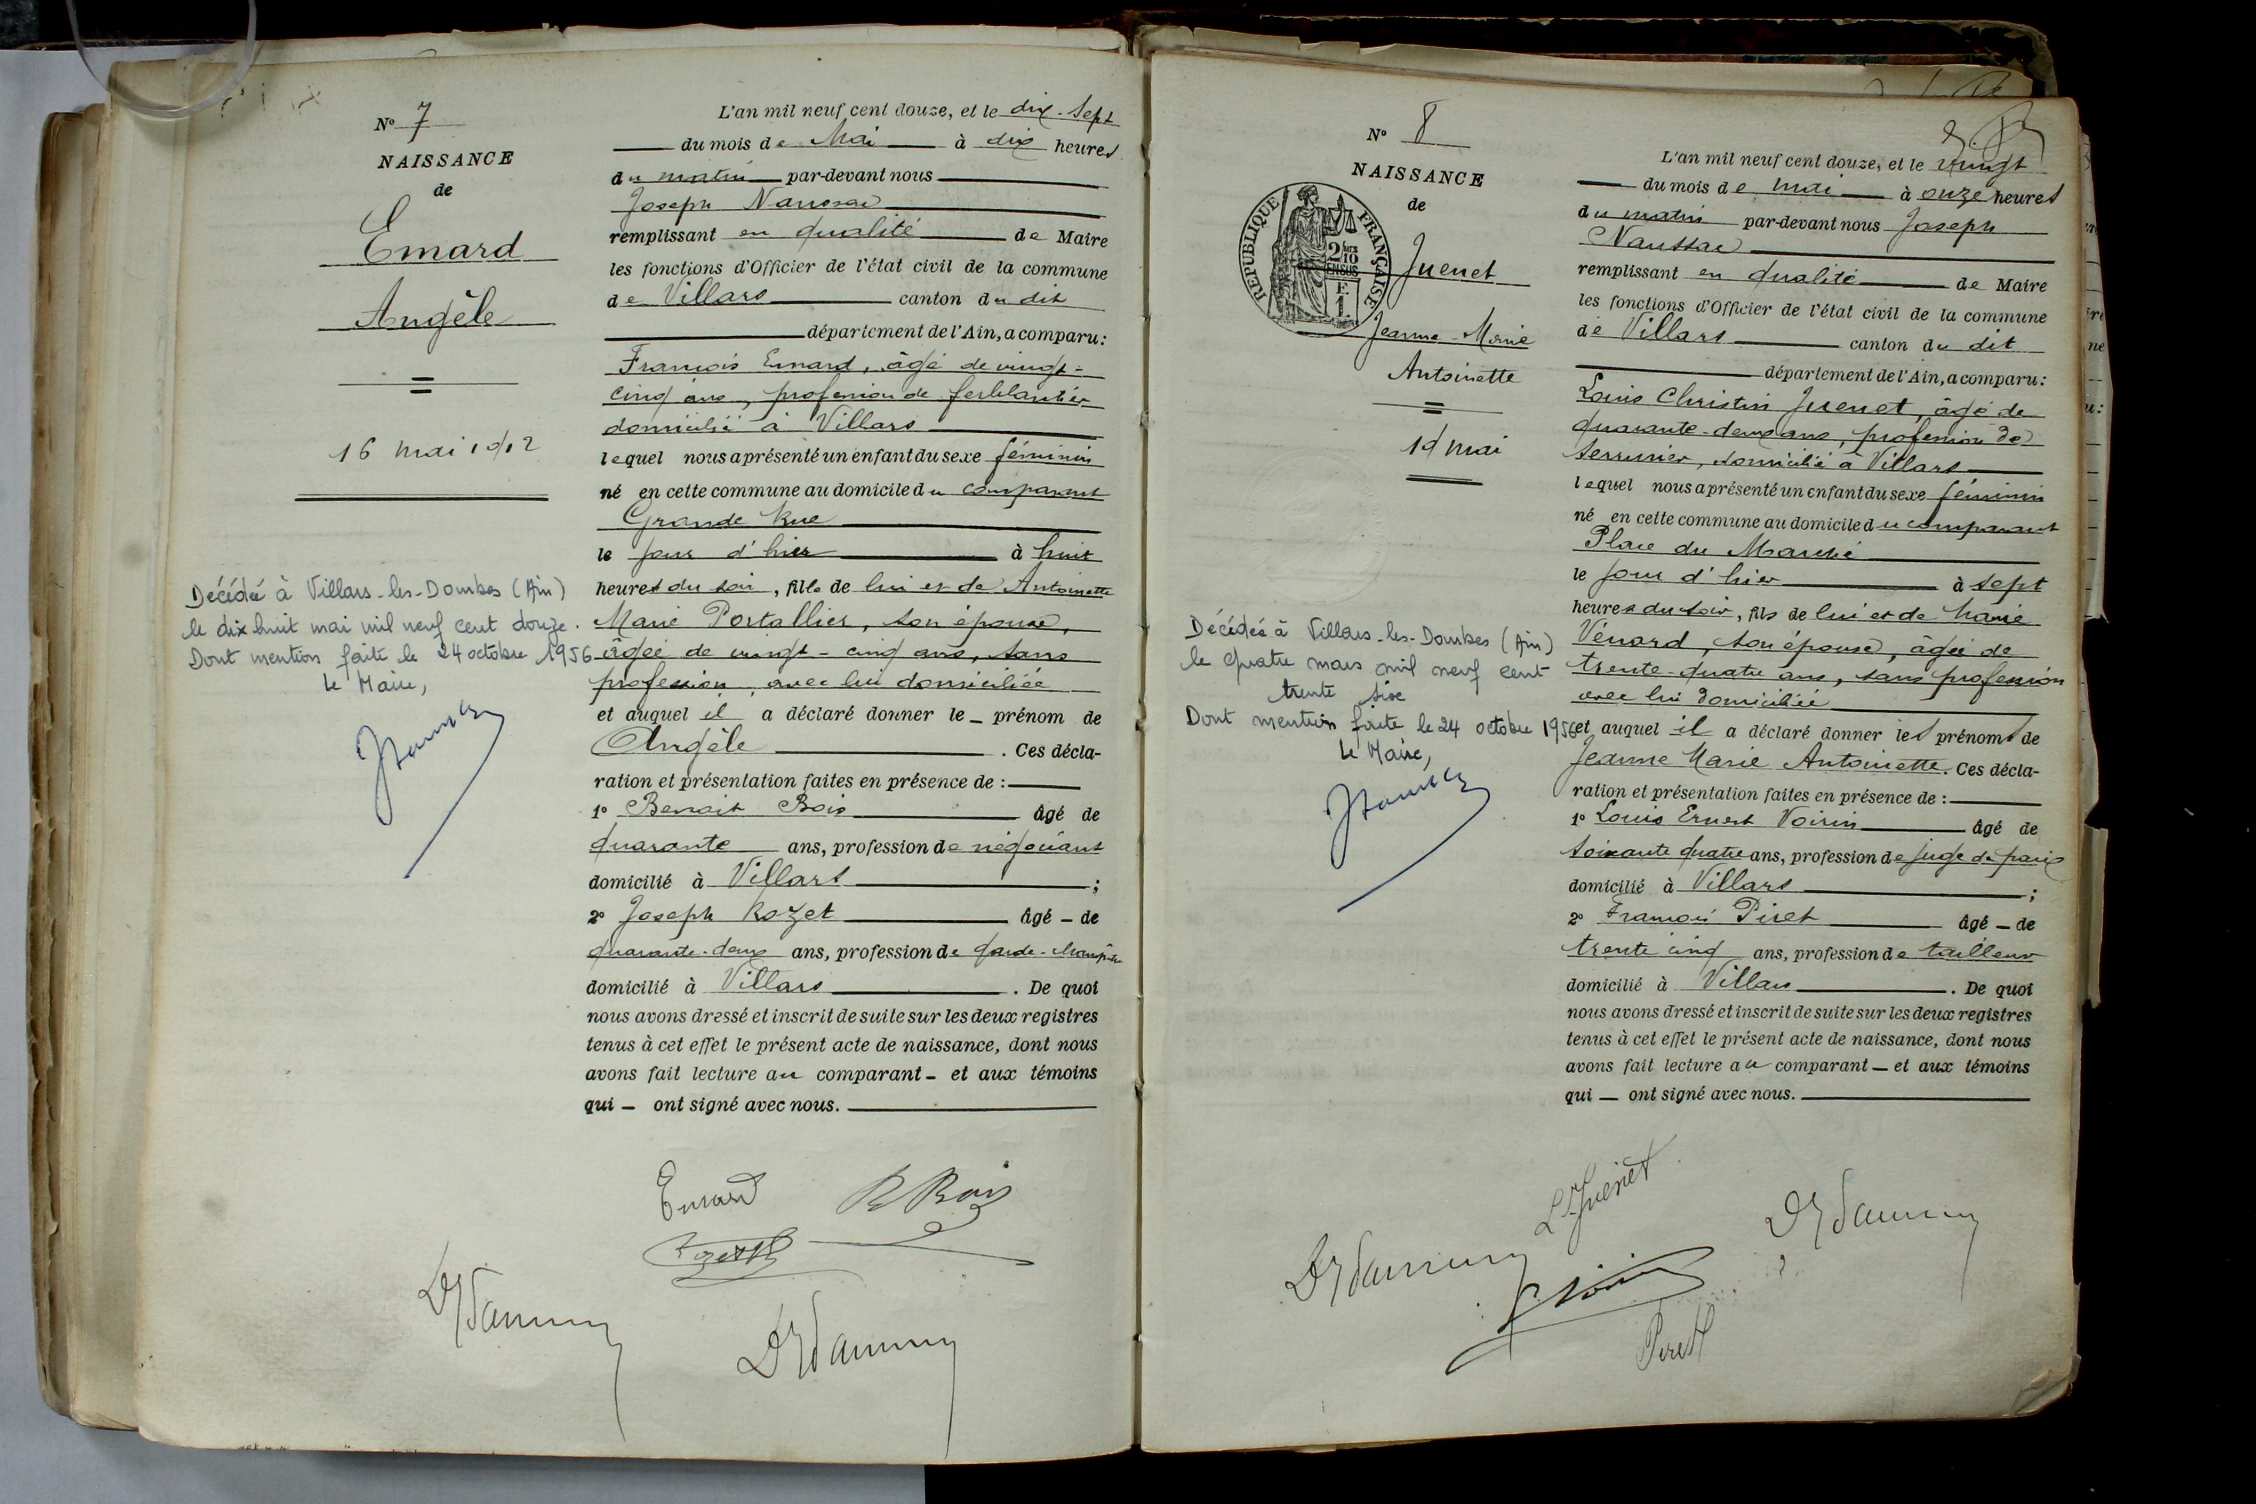 N° 7
NAISSANCE
de
Emard
Angèle
16 mai 1912
Décédée à Villars-les-Dombes (Ain)
le dix huit mai mil neuf cent douze.
Dont mention faite le 24 octobre 1956
Le Maire,
L'an mil neuf cent douze, et le dix-sept
du mois de Mai à dix heures
du matin par-devant nous
Joseph Naussac
remplissant en qualité de Maire
les fonctions d'Officier de l'état civil de la commune
de Villars canton du dit
département de l'Ain, a comparu:
François Emard, âgé de vingt-
cinq ans, profession de ferblantier
domicilié à Villars
lequel nous a présenté un enfant du sexe féminin
né en cette commune au domicile du comparant
Grande Rue
le jour d'hier à huit
heures du soir, fille de lui et de Antoinette
Marie Portallier, son épouse,
âgée de vingt-cinq ans, sans
profession, avec lui domiciliée
et auquel il a déclaré donner le prénom de
Angèle. Ces décla-
ration et présentation faites en présence de :
1° Benoit Bois âgé de
quarante ans, profession de négociant
domicilié à Villars ;
2° Joseph Rozet âgé de
quarante-deux ans, profession de garde-champêtre
domicilié à Villars. De quoi
nous avons dressé et inscrit de suite sur les deux registres
tenus à cet effet le présent acte de naissance, dont nous
avons fait lecture au comparant et aux témoins
qui ont signé avec nous.
Emard B Bois
N° 8
NAISSANCE
de
REPUBLIQUE FRANÇAISE
2/10 EN SUS
Juenet
Jeanne-Marie
Antoinette
19 mai
Décédée à Villars-les-Dombes (Ain)
le quatre mars mil neuf cent
trente six
Dont mention faite le 24 octobre 1956
Le Maire,
L'an mil neuf cent douze, et le vingt
du mois de mai à onze heures
du matin par-devant nous Joseph
Naussac
remplissant en qualité de Maire
les fonctions d'Officier de l'état civil de la commune
de Villars canton du dit
département de l'Ain, a comparu:
Louis Christin Juenet, âgé de
quarante-deux ans, profession de
serrurier, domicilié à Villars
lequel nous a présenté un enfant du sexe féminin
né en cette commune au domicile du comparant
Place du Marché
le jour d'hier à sept
heures du soir, fils de lui et de Marie
Vénard, son épouse, âgée de
trente-quatre ans, sans profession
avec lui domiciliée
et auquel il a déclaré donner les prénoms de
Jeanne Marie Antoinette. Ces décla-
ration et présentation faites en présence de :
1° Louis Ernest Voirin âgé de
soixante quatre ans, profession de juge de paix
domicilié à Villars ;
2° François Piret âgé de
trente cinq ans, profession de tailleur
domicilié à Villars. De quoi
nous avons dressé et inscrit de suite sur les deux registres
tenus à cet effet le présent acte de naissance, dont nous
avons fait lecture au comparant et aux témoins
qui ont signé avec nous.
L Juenet
Voirin
Piret